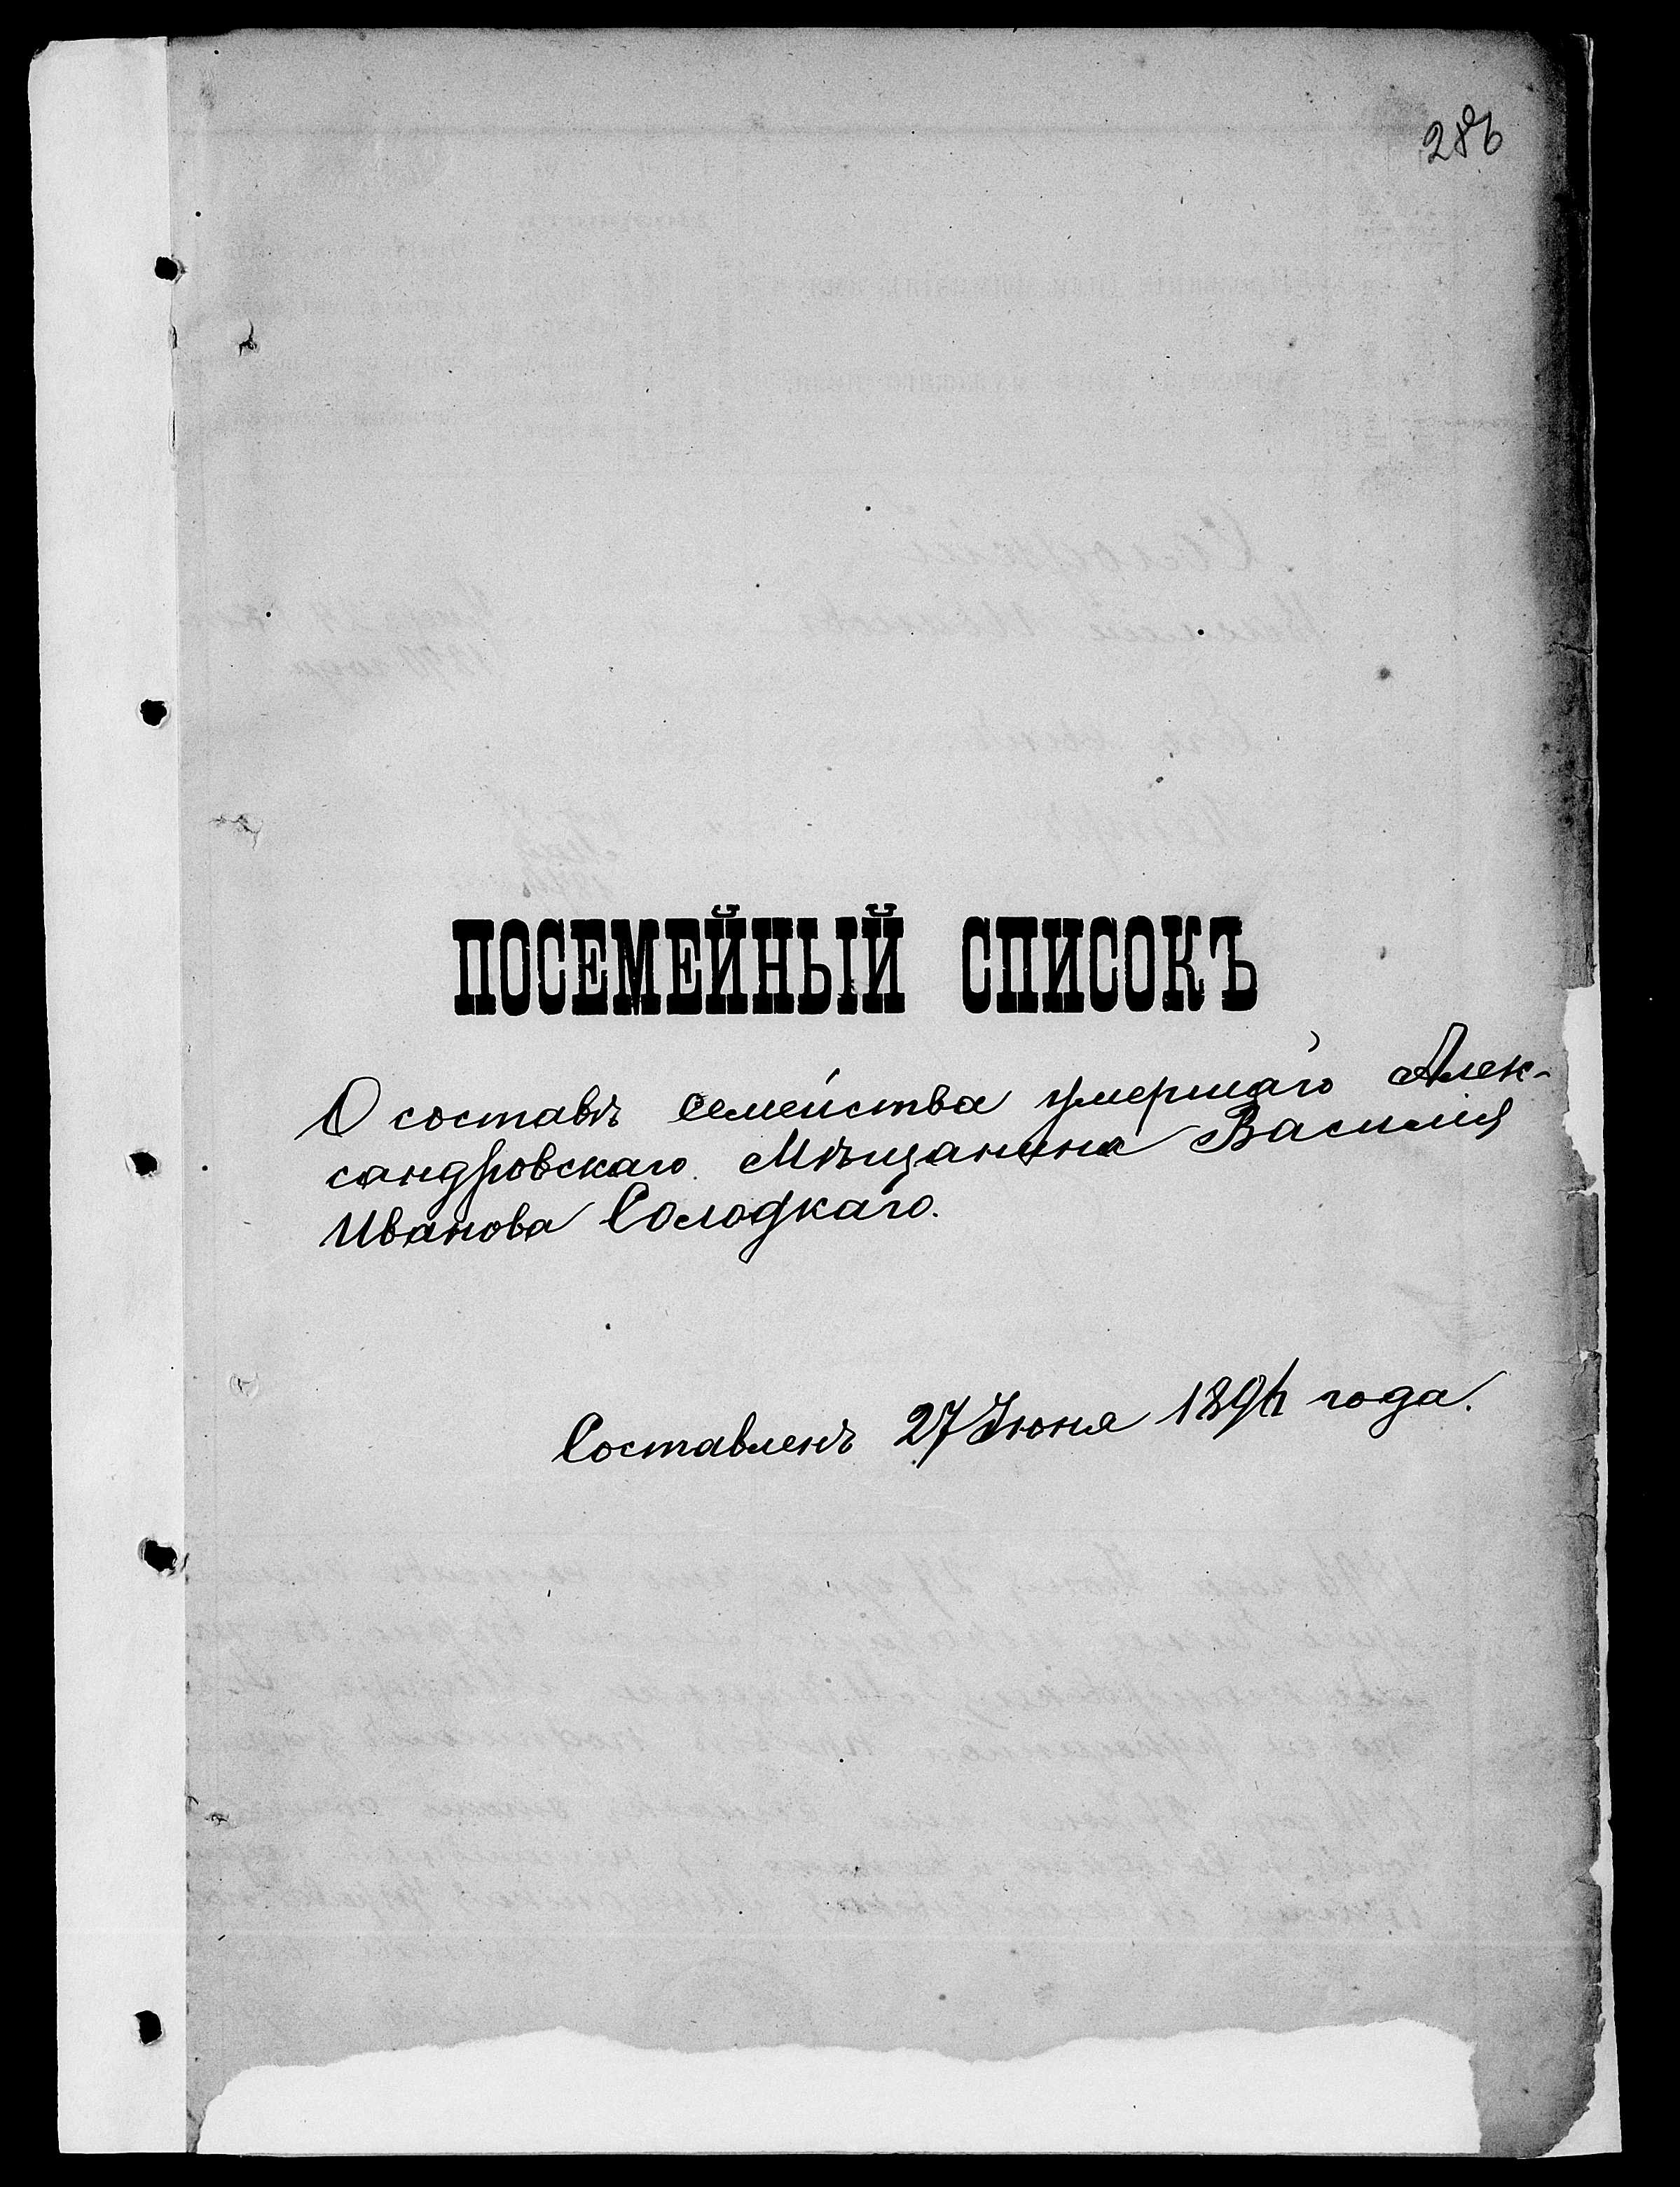 ПОСЕМЕЙНЫЙ СПИСОКЪ
О составѣ семейства умершаго Алек-
сандровскаго Мѣщанина Василия
Иванова Солодкаго.
Составленъ 27 Июня года.